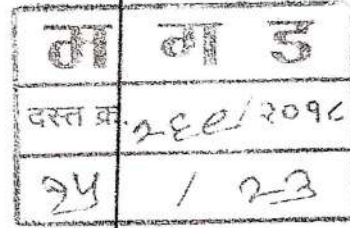 म ल ड
दस्त क्र. २६९/२०१८
१५ / २३